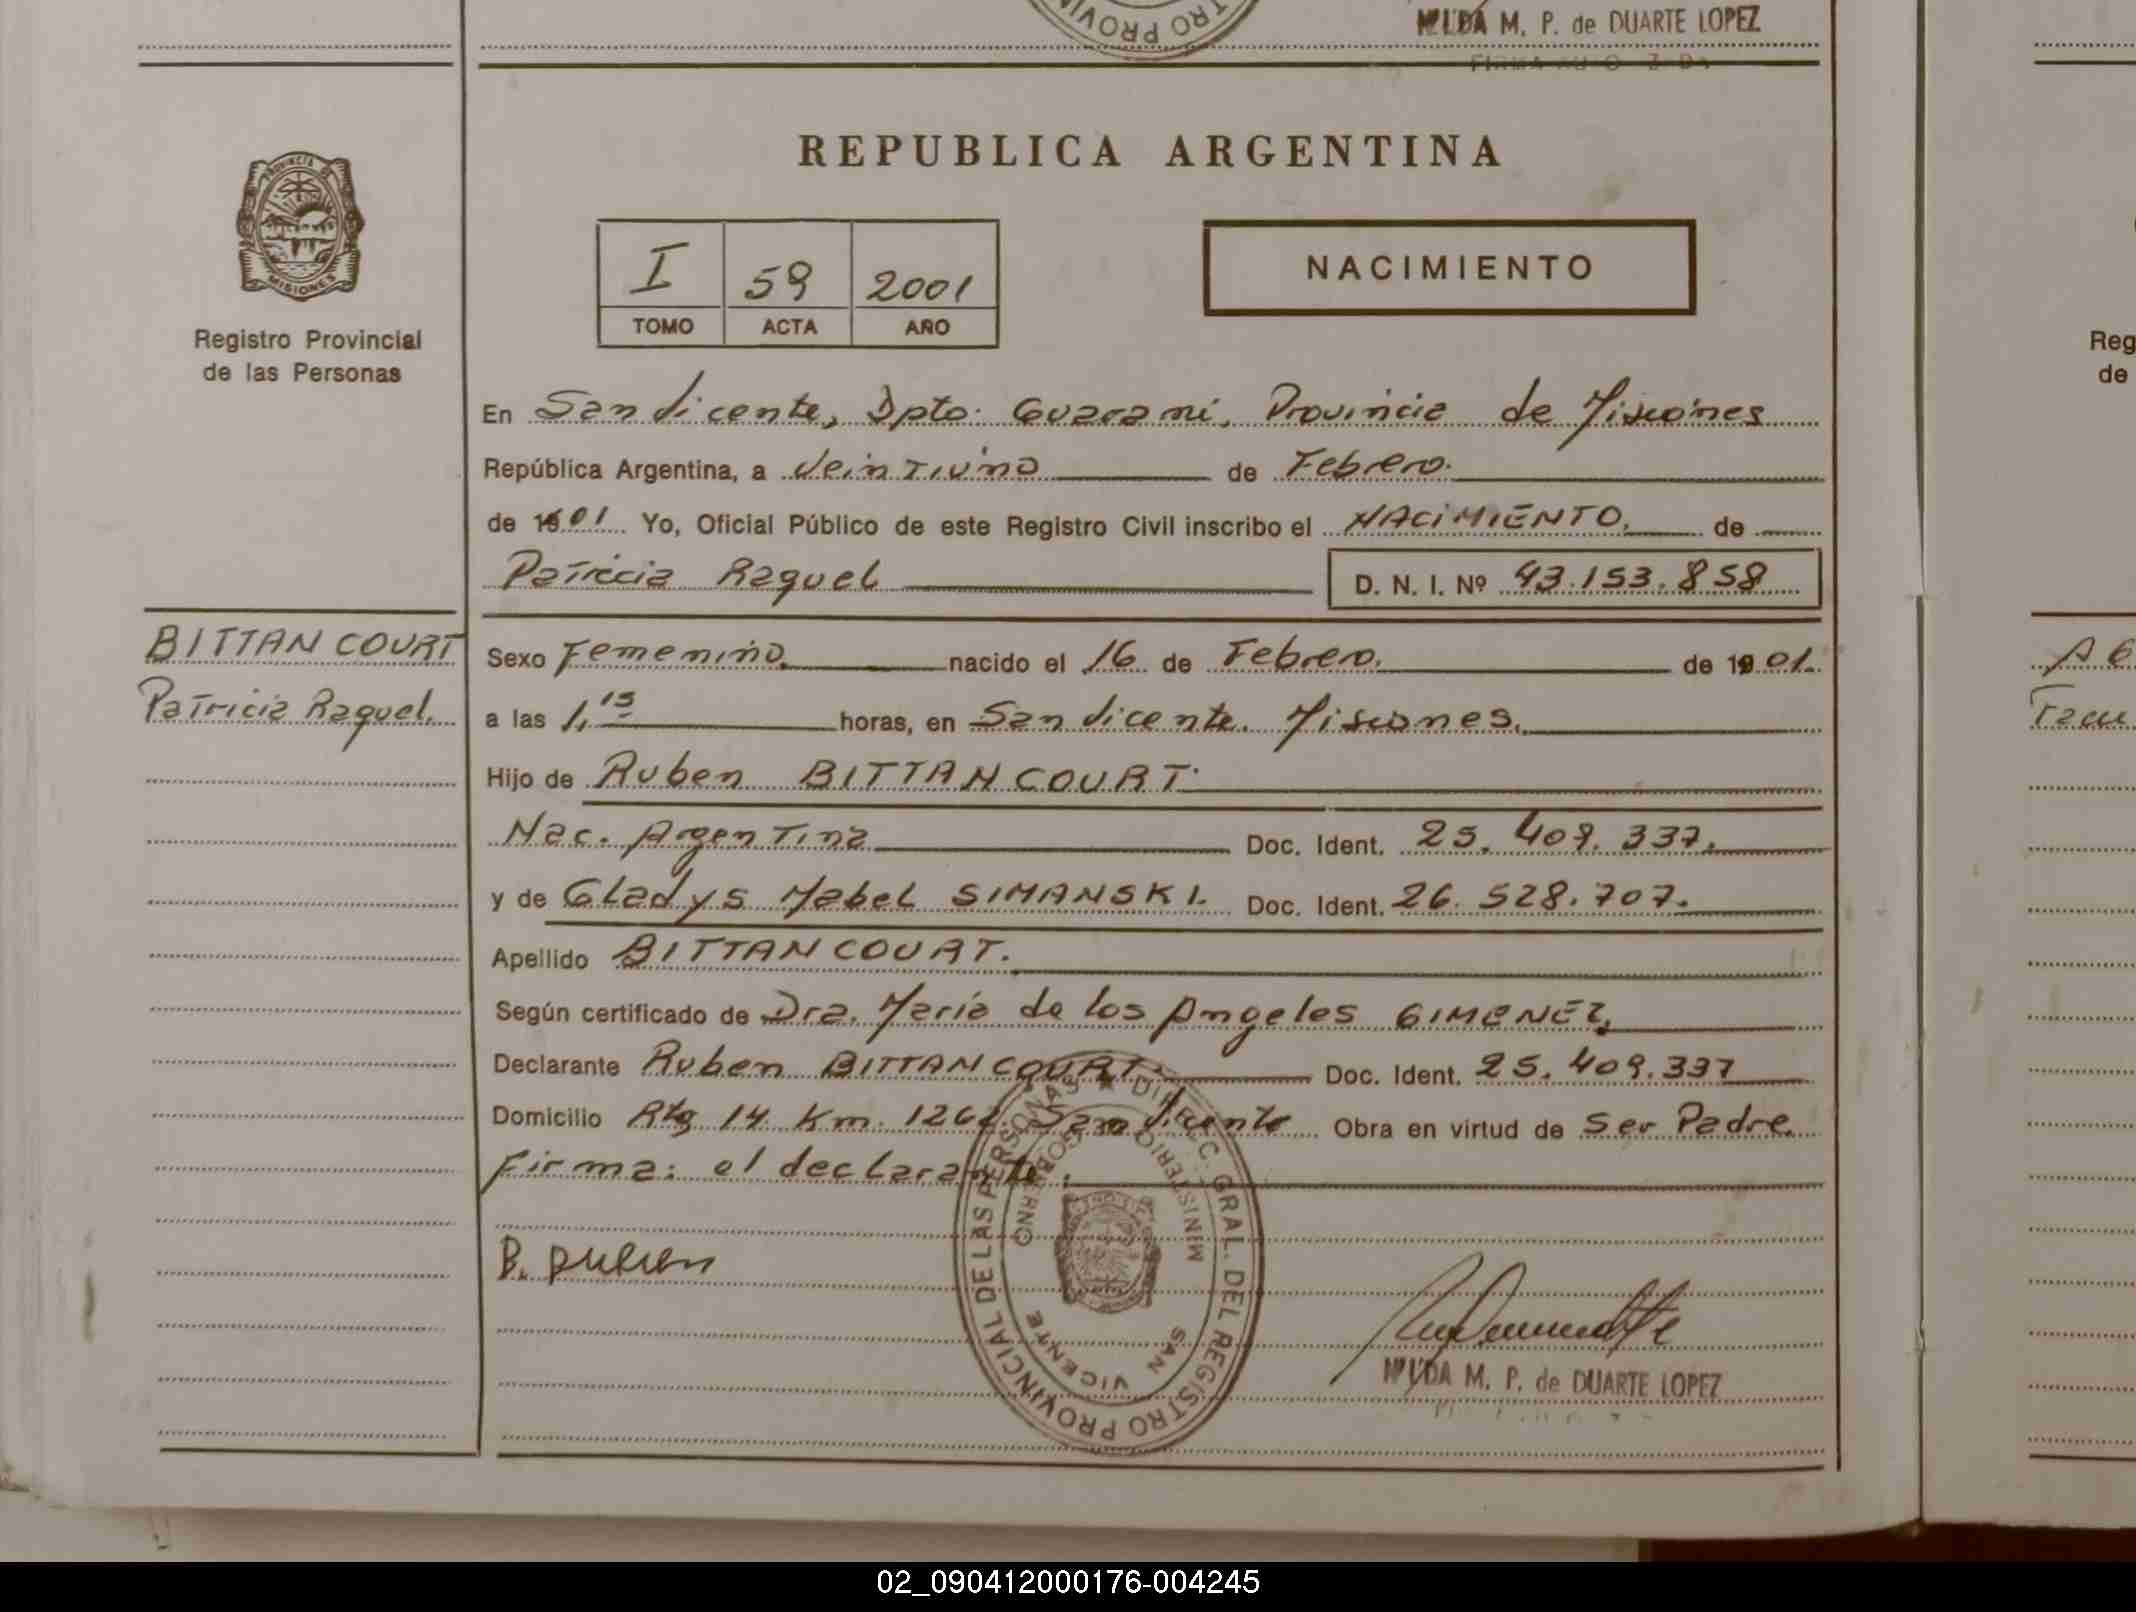 PROVINCIA DE
MISIONES
Registro Provincial
de las Personas
BITTANCOURT
Patricia Raquel.
TRO PROVIN
M. P. de DUARTE LOPEZ
REPUBLICA ARGENTINA
I 59 2001
TOMO ACTA AÑO
NACIMIENTO
En San Vicente, Dpto. Guarani, Provincia de Misiones
República Argentina, a Veintiuno de Febrero.
de 1901 Yo, Oficial Público de este Registro Civil inscribo el NACIMIENTO, de
Patricia Raquel D. N. I. Nº 43.153.858
Sexo Femenino. nacido el 16 de Febrero. de 1901.
a las 1,15 horas, en San Vicente. Misiones.
Hijo de Ruben BITTANCOURT.
Nac. Argentina Doc. Ident. 25.409.337.
y de Gladys Mabel SIMANSKI. Doc. Ident. 26.528.707.
Apellido BITTANCOURT.
Según certificado de Dra. Maria de los Angeles GIMENEZ,
Declarante Ruben BITTANCOURT. Doc. Ident. 25.409.337
Domicilio Rta 14 Km. 1262. San Vicente Obra en virtud de Ser Padre.
Firma: el declarante.
B. Ruben
DIRECC. GRAL. DEL REGISTRO PROVINCIAL DE LAS PERSONAS
MINISTERIO DE GOBIERNO
SAN VICENTE
M. P. de DUARTE LOPEZ
Reg
de
02_090412000176-004245